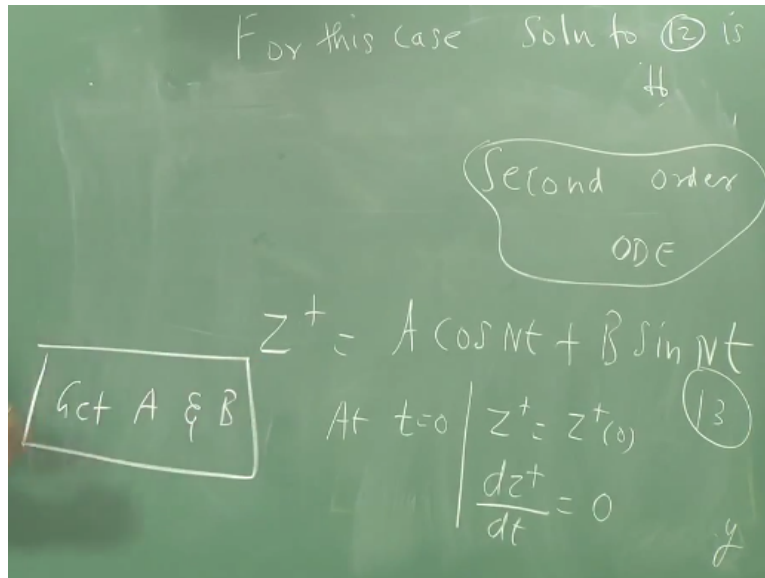 For this case Soln to (12) is
Second order
ODE
z⁺ = A cos Nt + B sin Nt
(13)
Get A & B
At t=0 | z⁺ = z⁺(0)
dz⁺/dt = 0
y